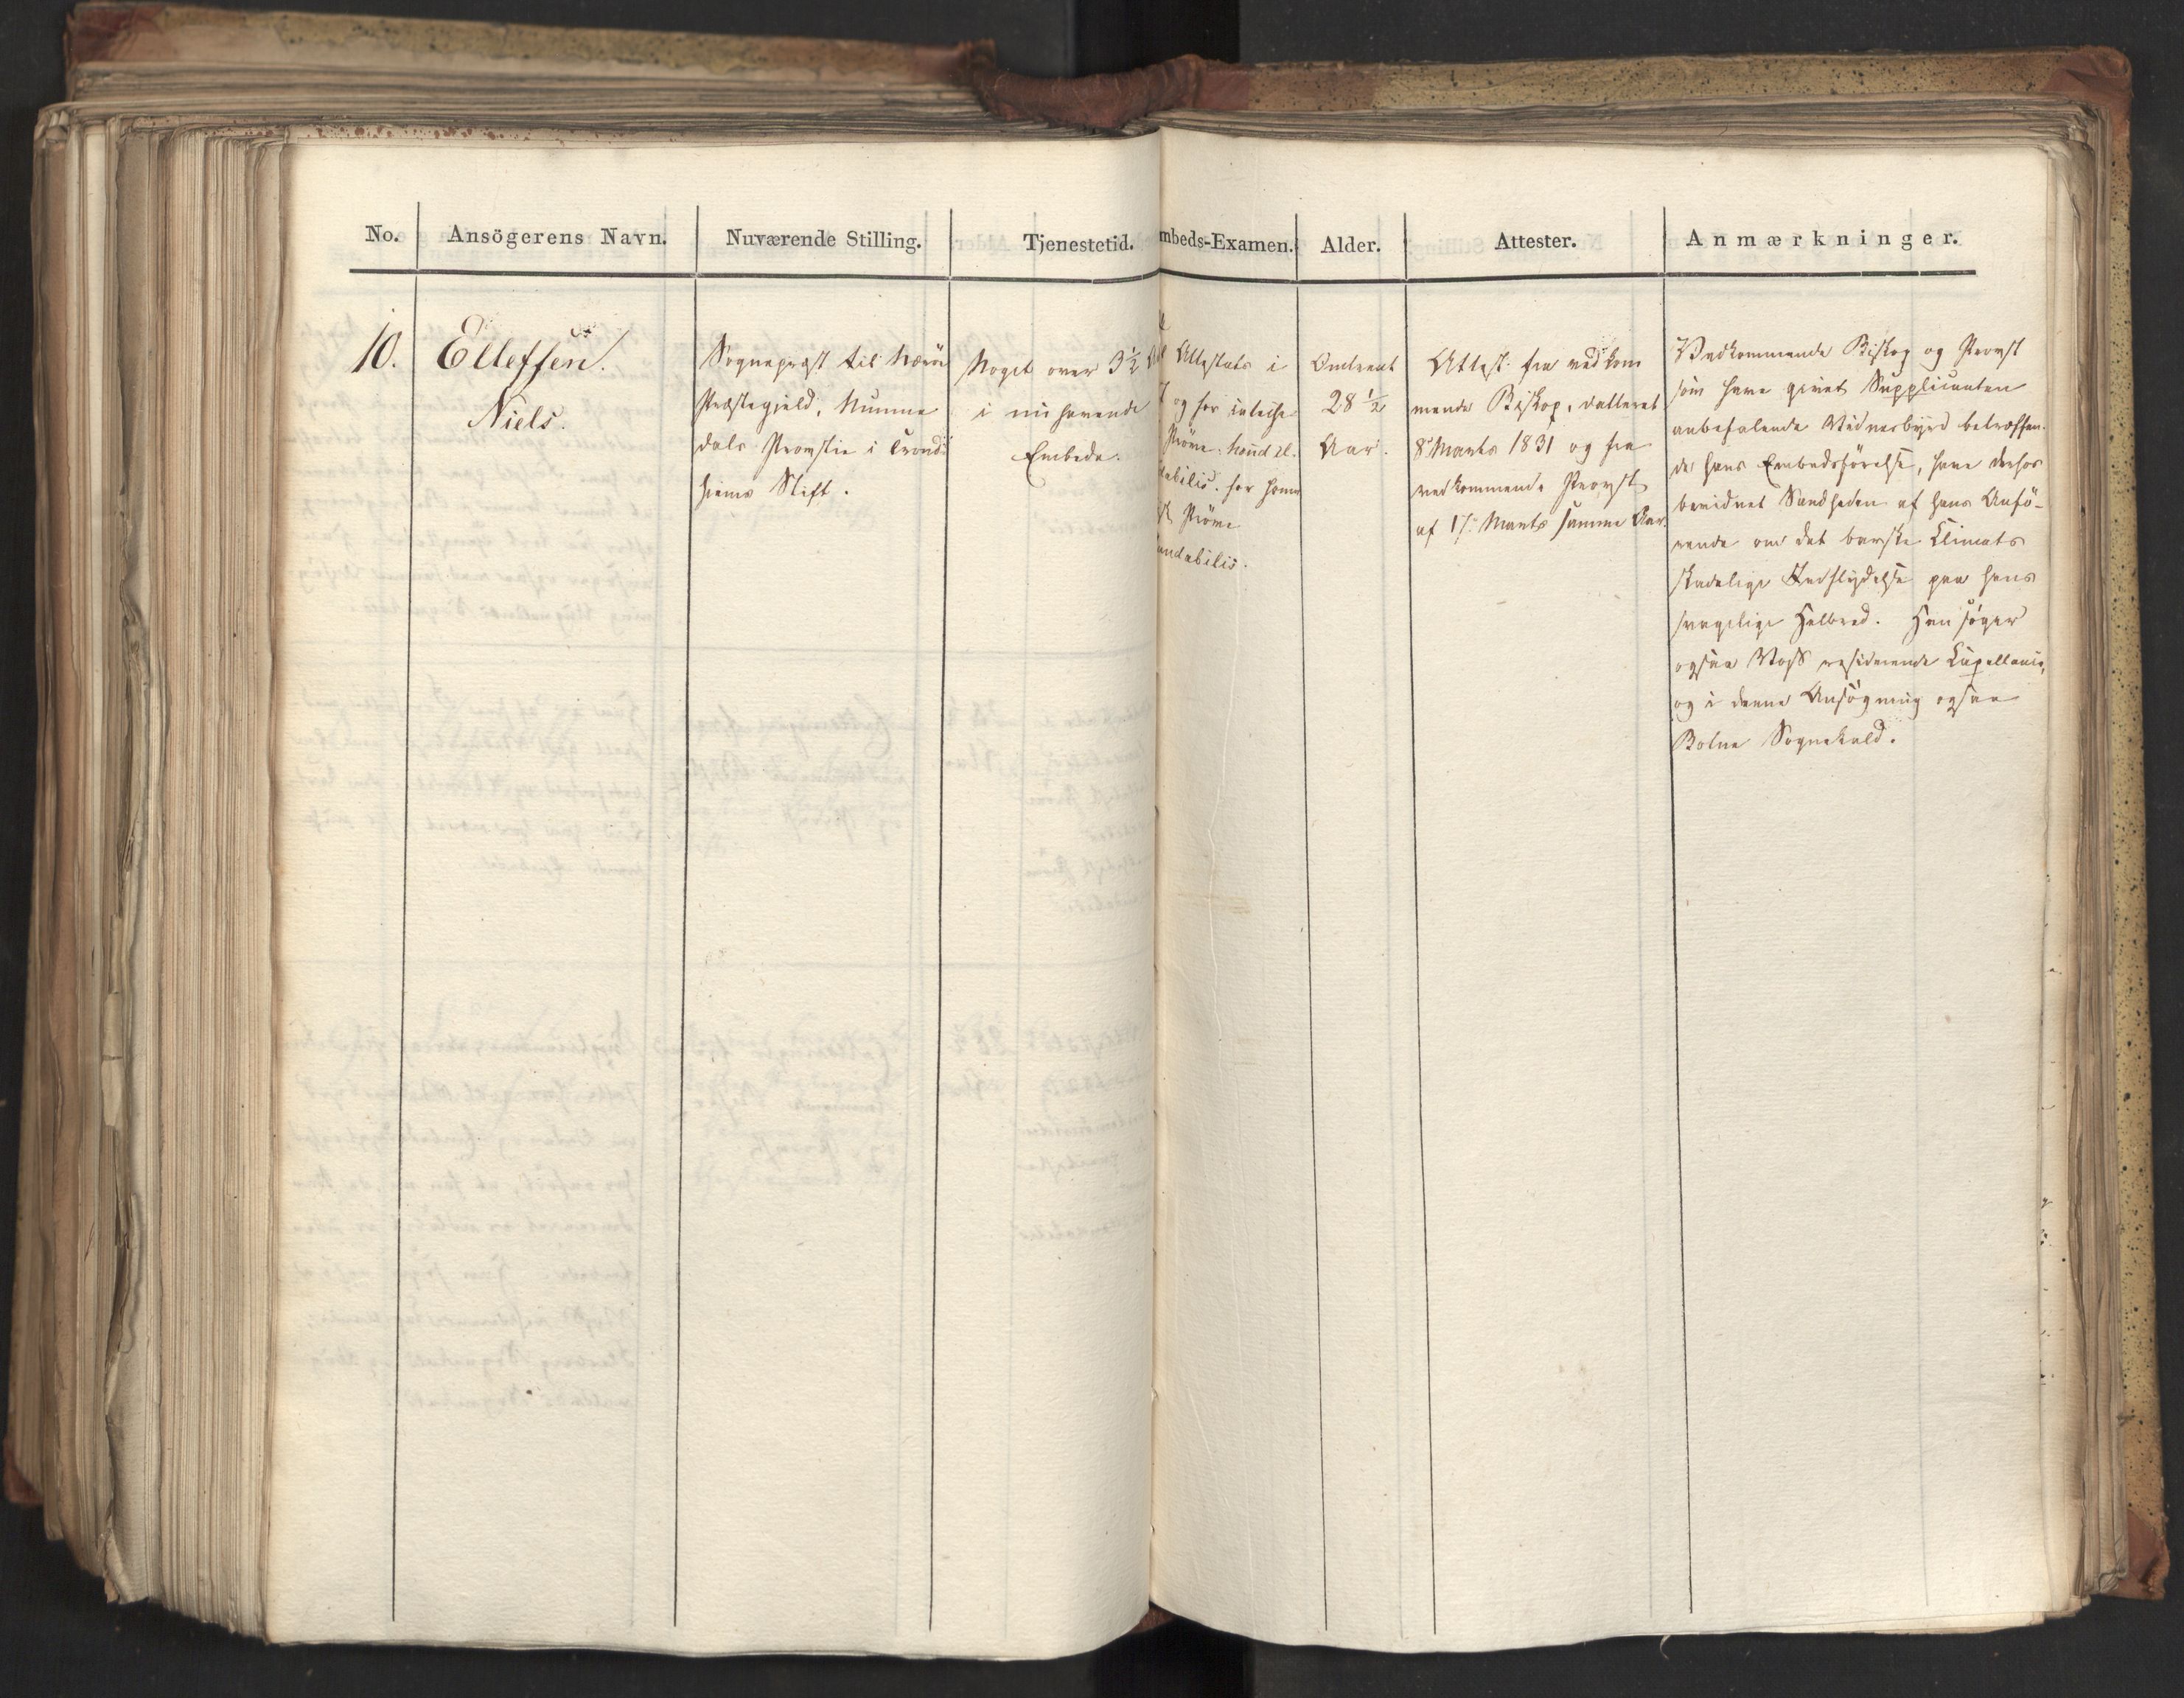 No. Ansögerens Navn. Nuværende Stilling. Tjenestetid. mbeds-Examen. Alder. Attester. Anmærkninger.
10.
Elleffsen.
Niels.
Sognepræst til Nærö
Præstegjeld, Numme
dals Provstie i Trond
hjems Stift.
Noget over 3 1/2
i nuhavende
Embede.
Attestats i
og for latinske
Pröve: haud il.
dabilis. for hom
Pröve
audabilis.
Omtrent
28 1/2
Aar.
Attest: fra vedkom
mende Biskop, datteret
8de Marts 1831 og fra
vedkommende Provst
af 17: Marts samme Aar.
Vedkommende Biskop og Provst
som have givet Supplicanten
anbefalende Vidnesbyrd betræffen-
de hans Embedsförelse, have derhos
bevidnet Sandheden af hans Anfö-
rende om det barske Climats
skadelige Indflydelse paa hans
svagelige Helbred. Han söger
ogsaa Voss residerende Capellanie,
og i denne Ansögning ogsaa
Botne Sognekald.